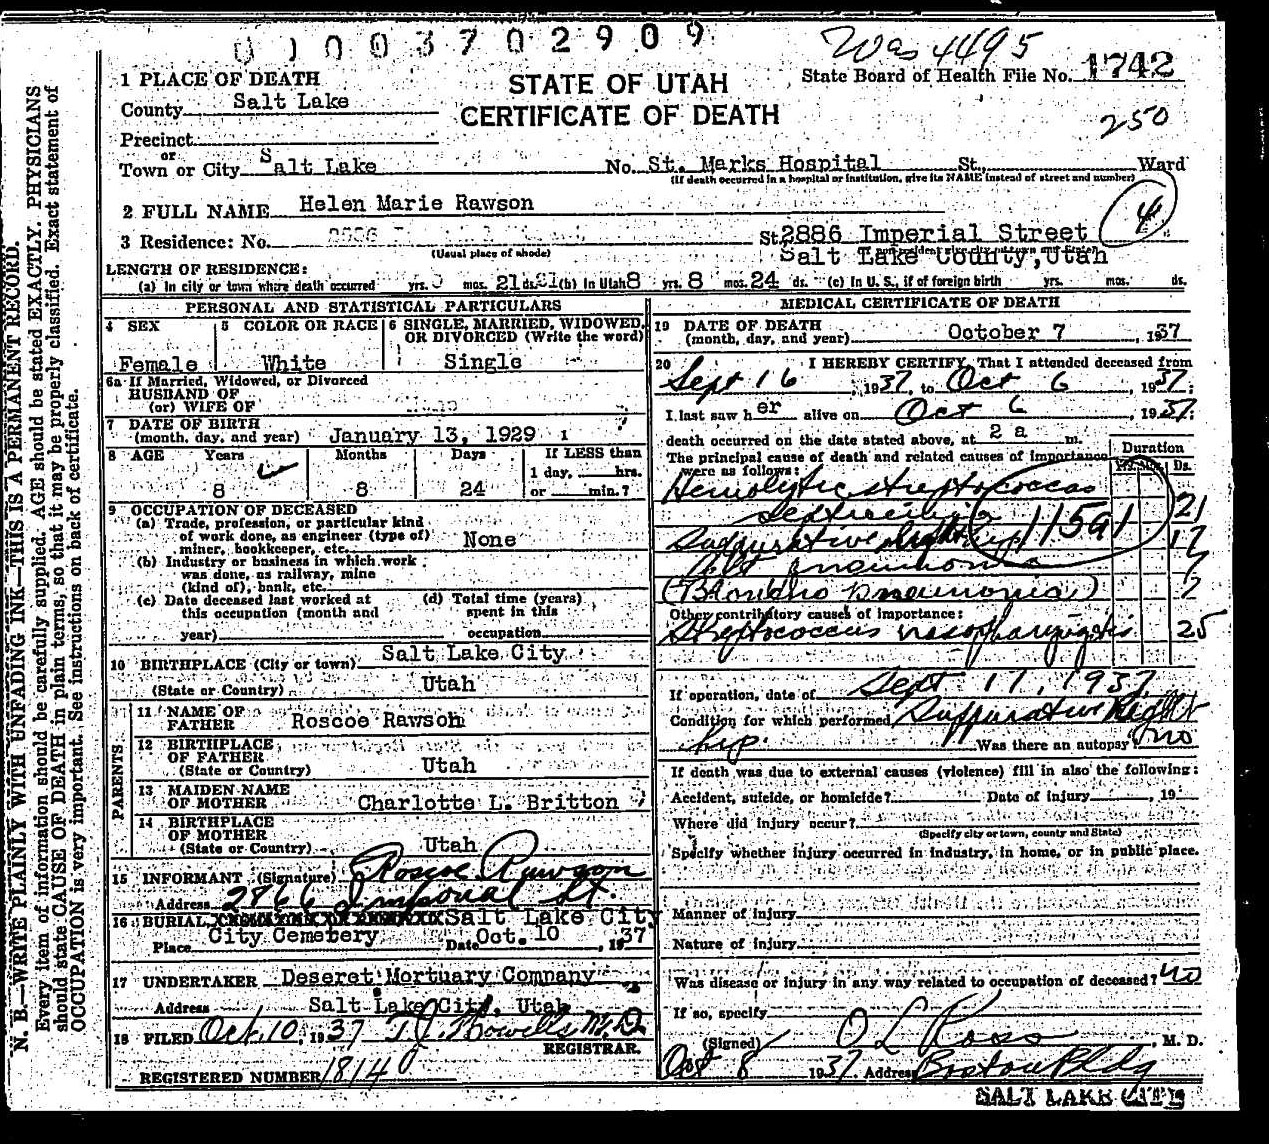 01003702909
Was 4495
STATE OF UTAH
CERTIFICATE OF DEATH
State Board of Health File No. 1742
250
1 PLACE OF DEATH
County Salt Lake
Precinct
or
Town or City Salt Lake No. St. Marks Hospital St., Ward
(If death occurred in a hospital or institution, give its NAME instead of street and number)
2 FULL NAME Helen Marie Rawson
4
3 Residence: No. St. 2886 Imperial Street
(Usual place of abode)
Salt Lake County, Utah
LENGTH OF RESIDENCE:
(a) In city or town where death occurred yrs. mos. 21 ds. (b) In Utah 8 yrs. 8 mos. 24 ds. (c) In U. S., if of foreign birth yrs. mos. ds.
PERSONAL AND STATISTICAL PARTICULARS
4 SEX
Female
5 COLOR OR RACE
White
6 SINGLE, MARRIED, WIDOWED, OR DIVORCED (Write the word)
Single
6a If Married, Widowed, or Divorced
HUSBAND OF
(or) WIFE OF
7 DATE OF BIRTH
(month, day, and year) January 13, 1929
8 AGE Years Months Days If LESS than
1 day, hrs.
8 8 24 or min.?
9 OCCUPATION OF DECEASED
(a) Trade, profession, or particular kind
of work done, as engineer (type of)
miner, bookkeeper, etc. None
(b) Industry or business in which work
was done, as railway, mine
(kind of), bank, etc.
(c) Date deceased last worked at
this occupation (month and
year)
(d) Total time (years)
spent in this
occupation
10 BIRTHPLACE (City or town) Salt Lake City
(State or Country) Utah
PARENTS
11 NAME OF
FATHER Roscoe Rawson
12 BIRTHPLACE
OF FATHER
(State or Country) Utah
13 MAIDEN NAME
OF MOTHER Charlotte L. Britton
14 BIRTHPLACE
OF MOTHER
(State or Country) Utah
15 INFORMANT (Signature) Roscoe Rawson
Address 2866 Imperial St.
16 BURIAL, Salt Lake City
Place City Cemetery Date Oct. 10, 1937
17 UNDERTAKER Deseret Mortuary Company
Address Salt Lake City, Utah
18 FILED Oct. 10, 1937 T.J. Howells M.D.
REGISTRAR.
REGISTERED NUMBER 1814
MEDICAL CERTIFICATE OF DEATH
19 DATE OF DEATH
(month, day, and year) October 7, 1937
20 I HEREBY CERTIFY, That I attended deceased from
Sept 16, 1937, to Oct 6, 1937;
I last saw her alive on Oct 6, 1937;
death occurred on the date stated above, at 2 a m.
The principal cause of death and related causes of importance
were as follows:
Duration
Yrs. Mos. Ds.
Hemolytic streptococcas
septicemia 21
115a1
Suppurative Right hip 17
Left pneumonia 7
(Broncho pneumonia) 2
Other contributory causes of importance:
Streptococcus nasopharyngitis 25
If operation, date of Sept 17, 1937
Condition for which performed Suppurative Right
hip. Was there an autopsy? no
If death was due to external causes (violence) fill in also the following:
Accident, suicide, or homicide? Date of injury , 19
Where did injury occur?
(Specify city or town, county and State)
Specify whether injury occurred in industry, in home, or in public place.
Manner of injury
Nature of injury
Was disease or injury in any way related to occupation of deceased? no
If so, specify
(Signed) O L Ross, M. D.
Oct 8 1937 Address Boston Bldg
SALT LAKE CITY
N. B.—WRITE PLAINLY WITH UNFADING INK—THIS IS A PERMANENT RECORD.
Every item of information should be carefully supplied. AGE should be stated EXACTLY. PHYSICIANS
should state CAUSE OF DEATH in plain terms, so that it may be properly classified. Exact statement of
OCCUPATION is very important. See instructions on back of certificate.